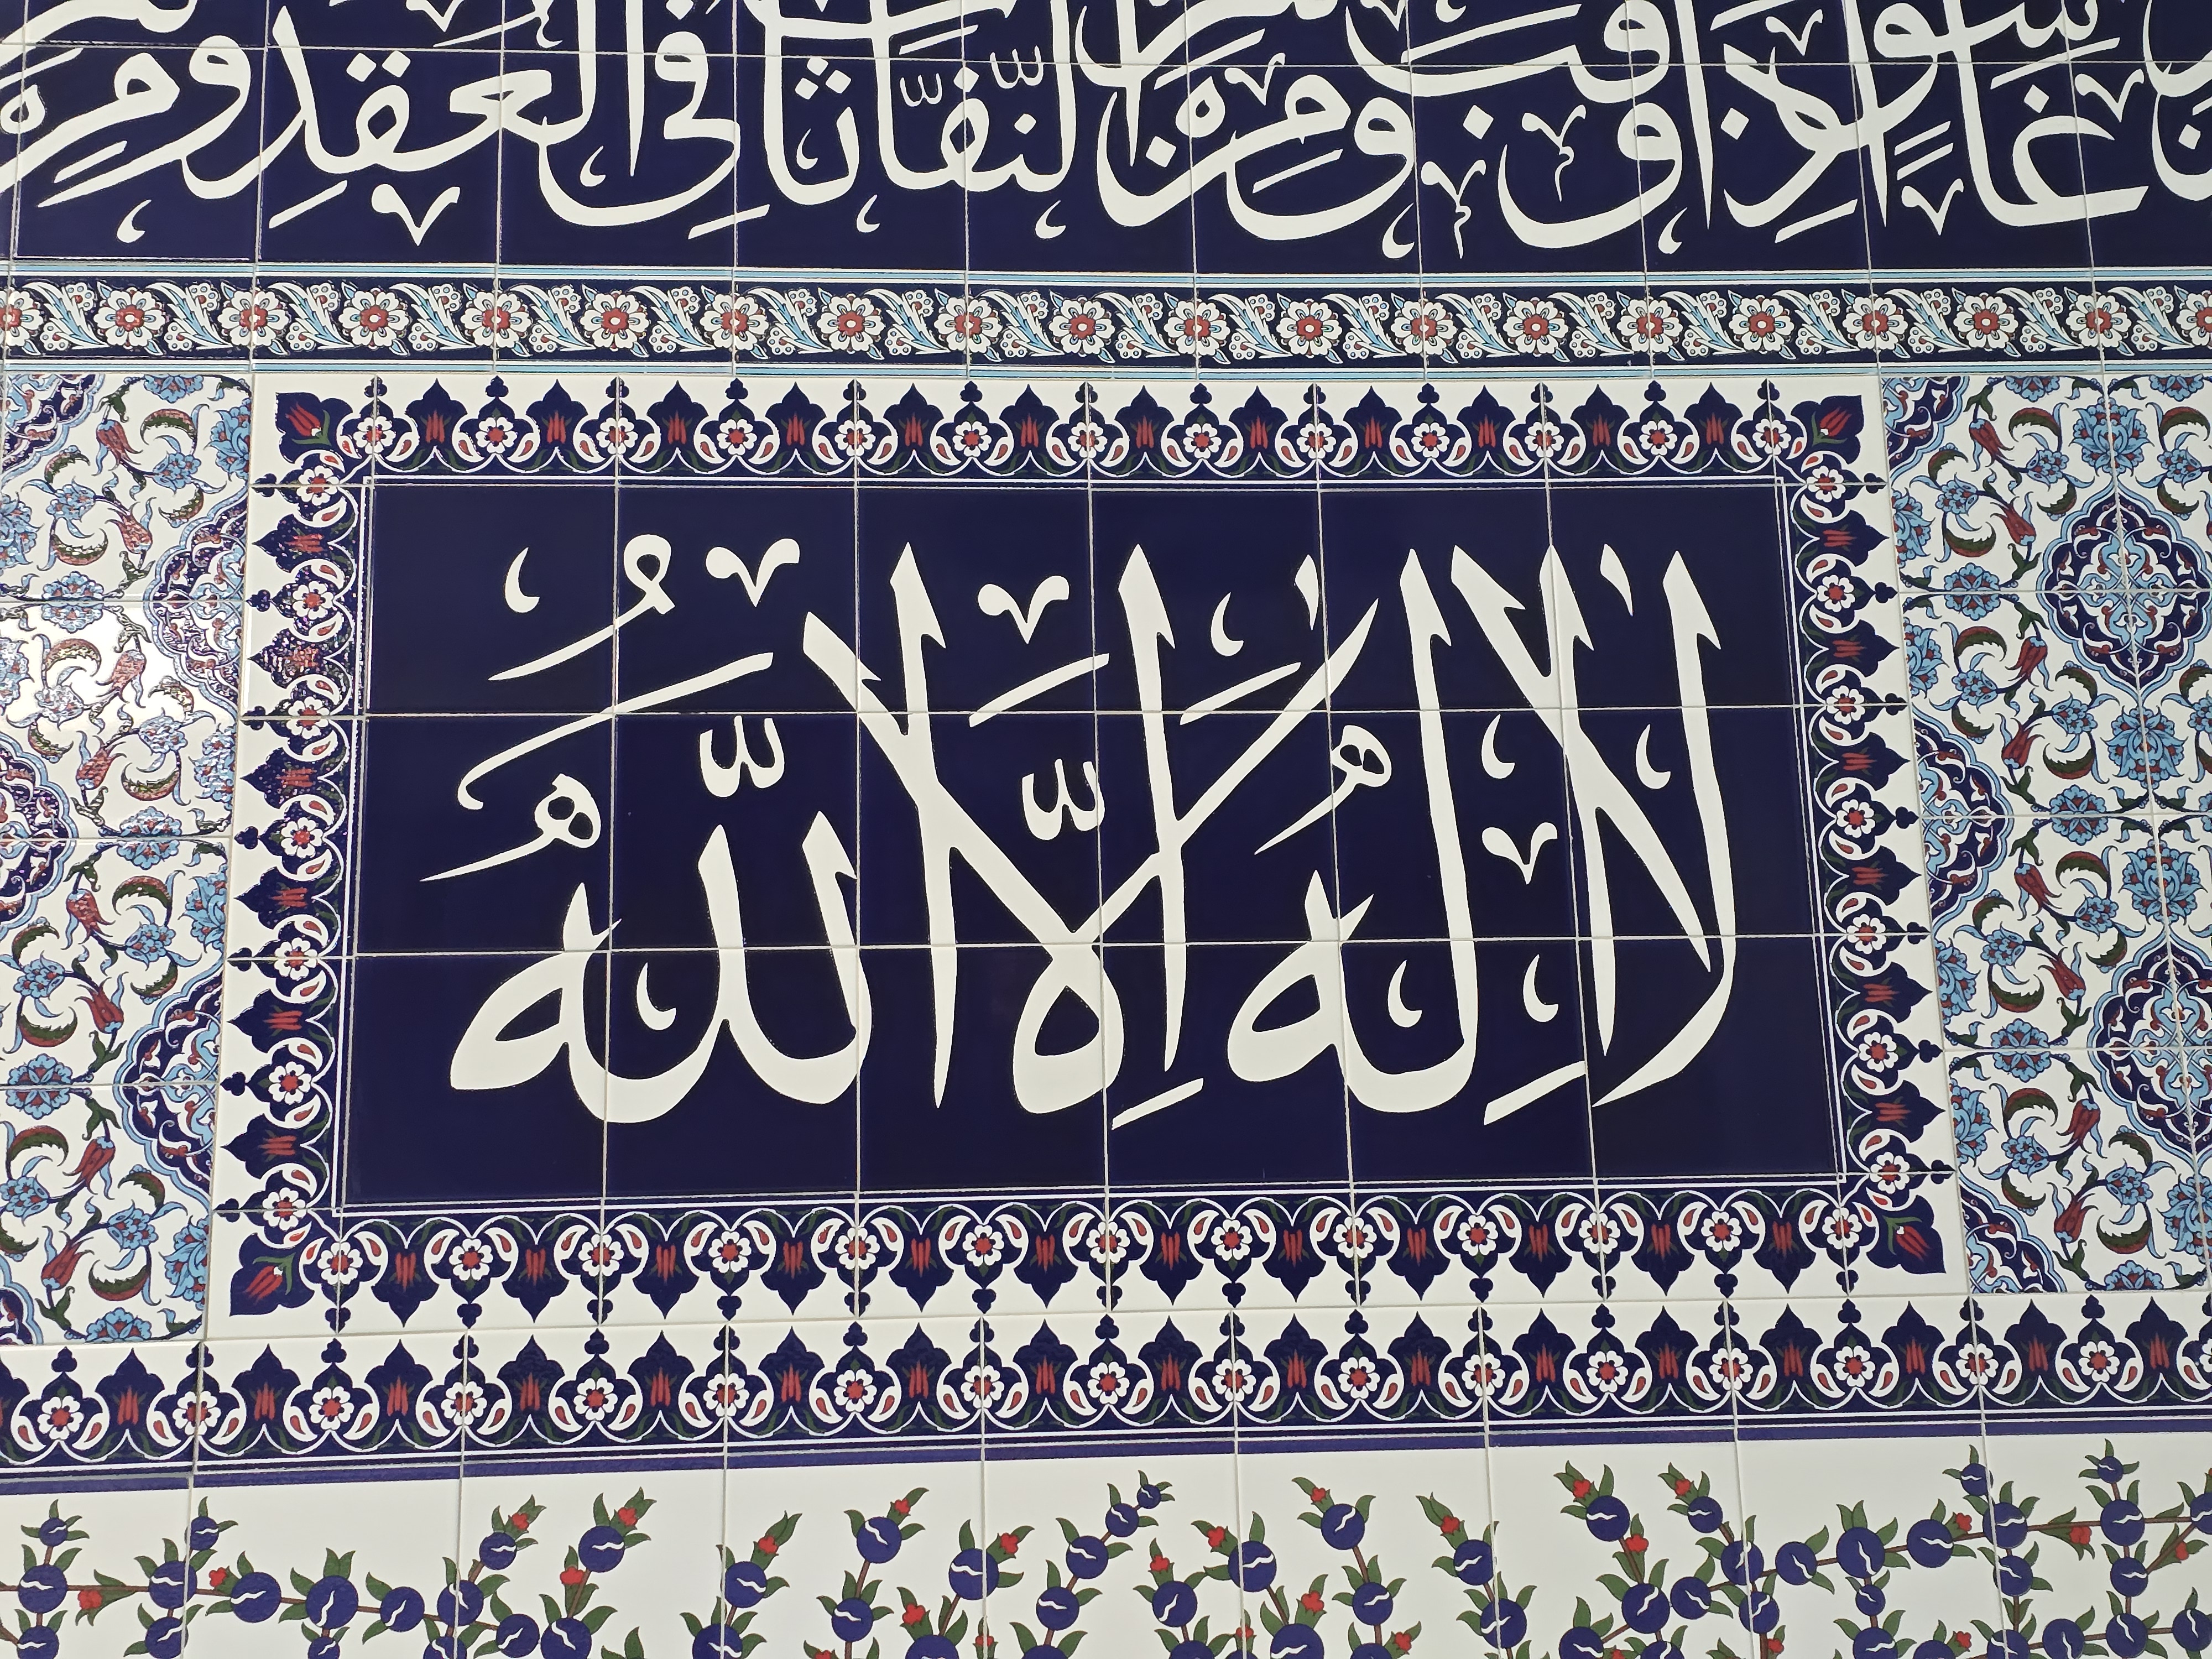 غَاسِقٍ اِذَا وَقَبَ وَمِنْ شَرِّ النَّفَّاثَاتِ فِى الْعُقَدِ وَمِنْ
لَا اِلٰهَ اِلَّا اللّٰهُ